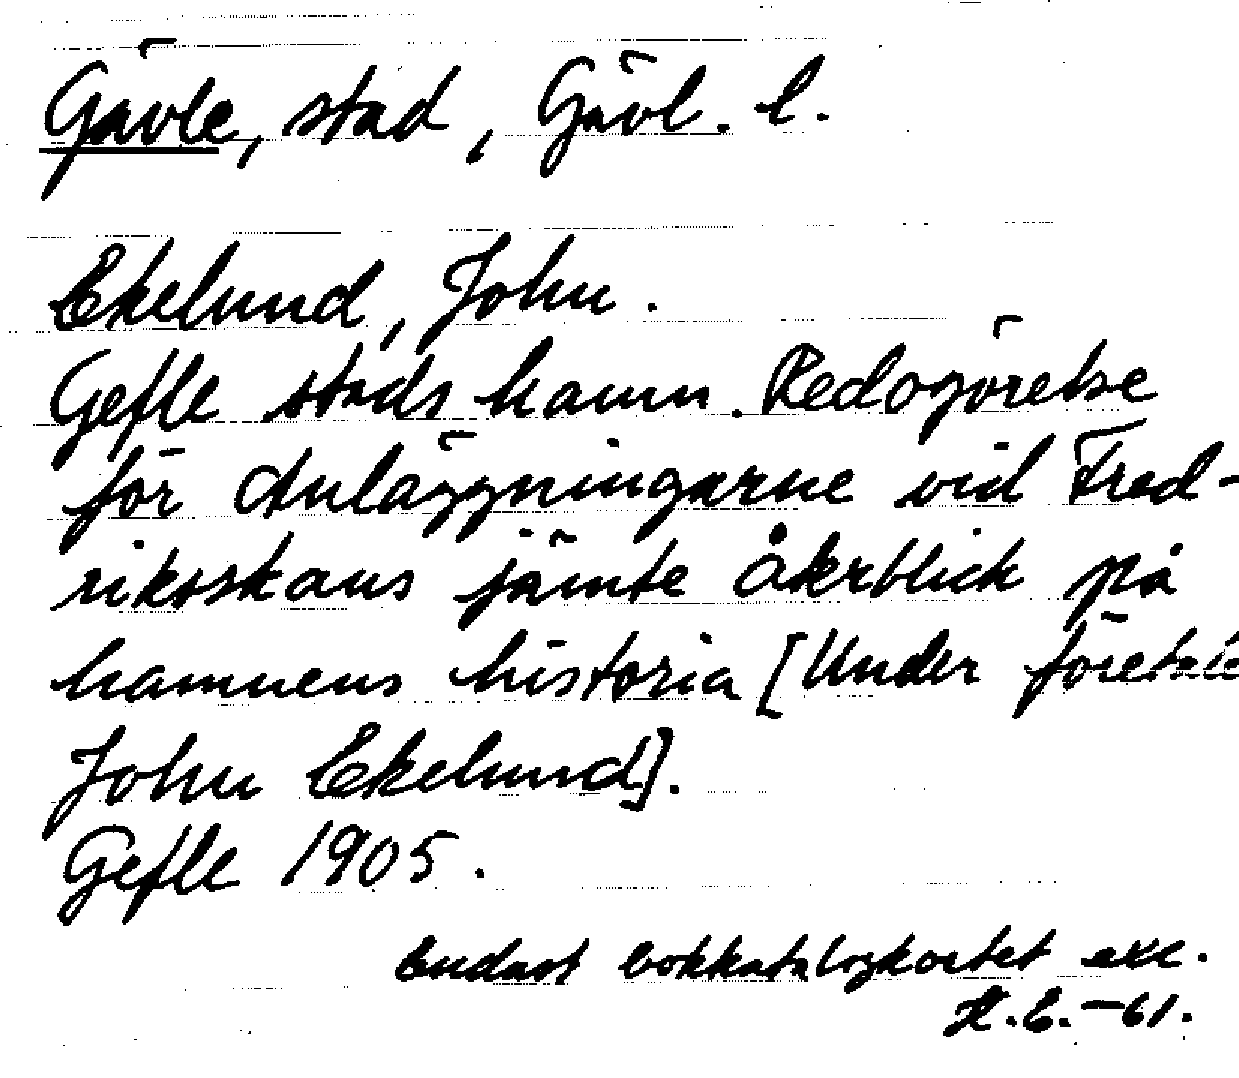 Gävle, stad, Gävl. l.
Ekelund, John.
Gefle stads hamn. Redogörelse
för Anläggningarne vid Fred-
rikskans jämte återblick på
hamnens historia [Under
John Ekelund].
Gefle 1905.
Endast bokkatalogkortet exc.
H.E.-61.